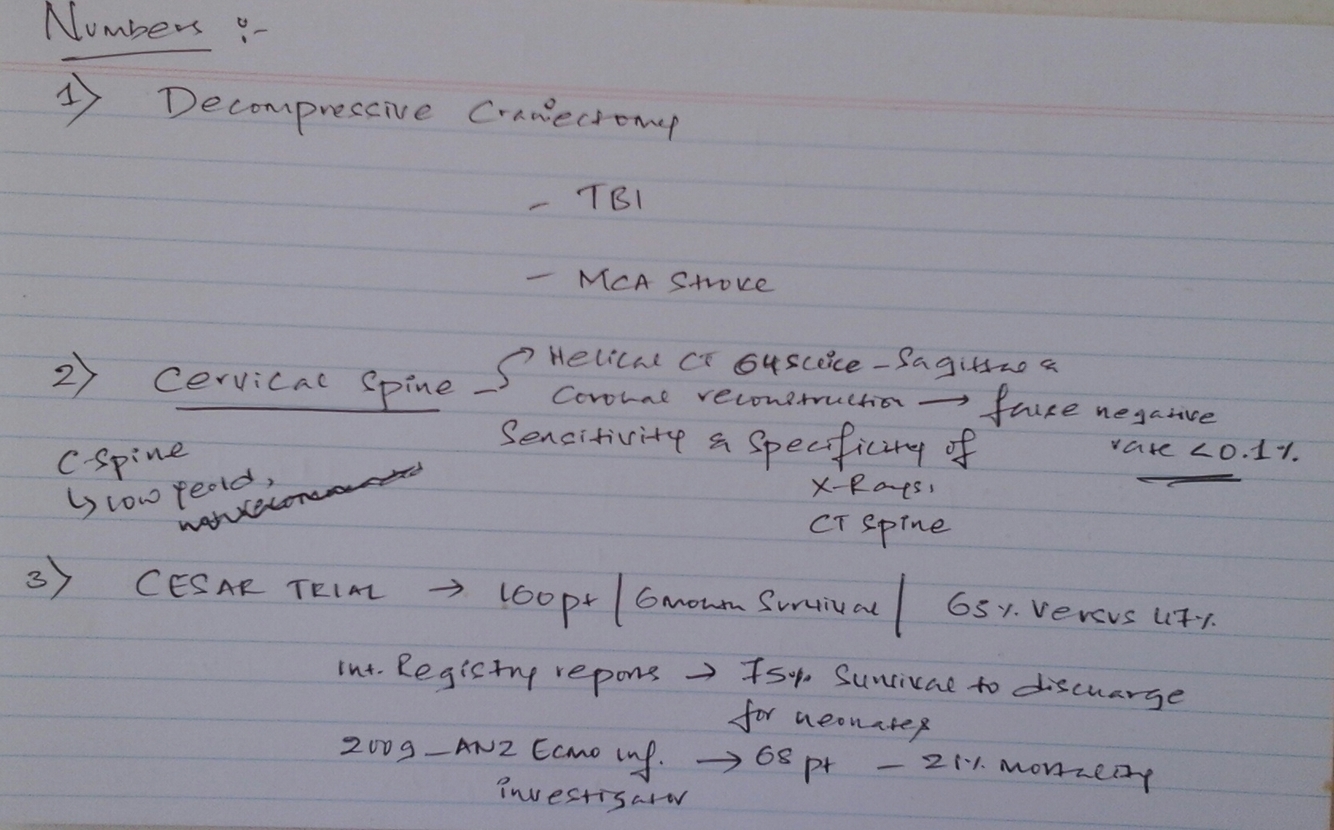 Numbers :-
1) Decompressive Craniectomy
- TBI
- MCA Stroke
2) Cervical Spine → Helical CT 64 slice - Sagittal &
Coronal reconstruction → false negative
rate <0.1%.
Sensitivity & Specificity of
X-Rays,
CT Spine
C-spine
↳ low yeald,
3) CESAR TRIAL → 160pt | 6month Survival | 63% Versus 47%
Int. Registry repors → 75% Survival to discharge
for neonates
2009 - ANZ Ecmo inf. → 68 pt - 21% mortality
investigator